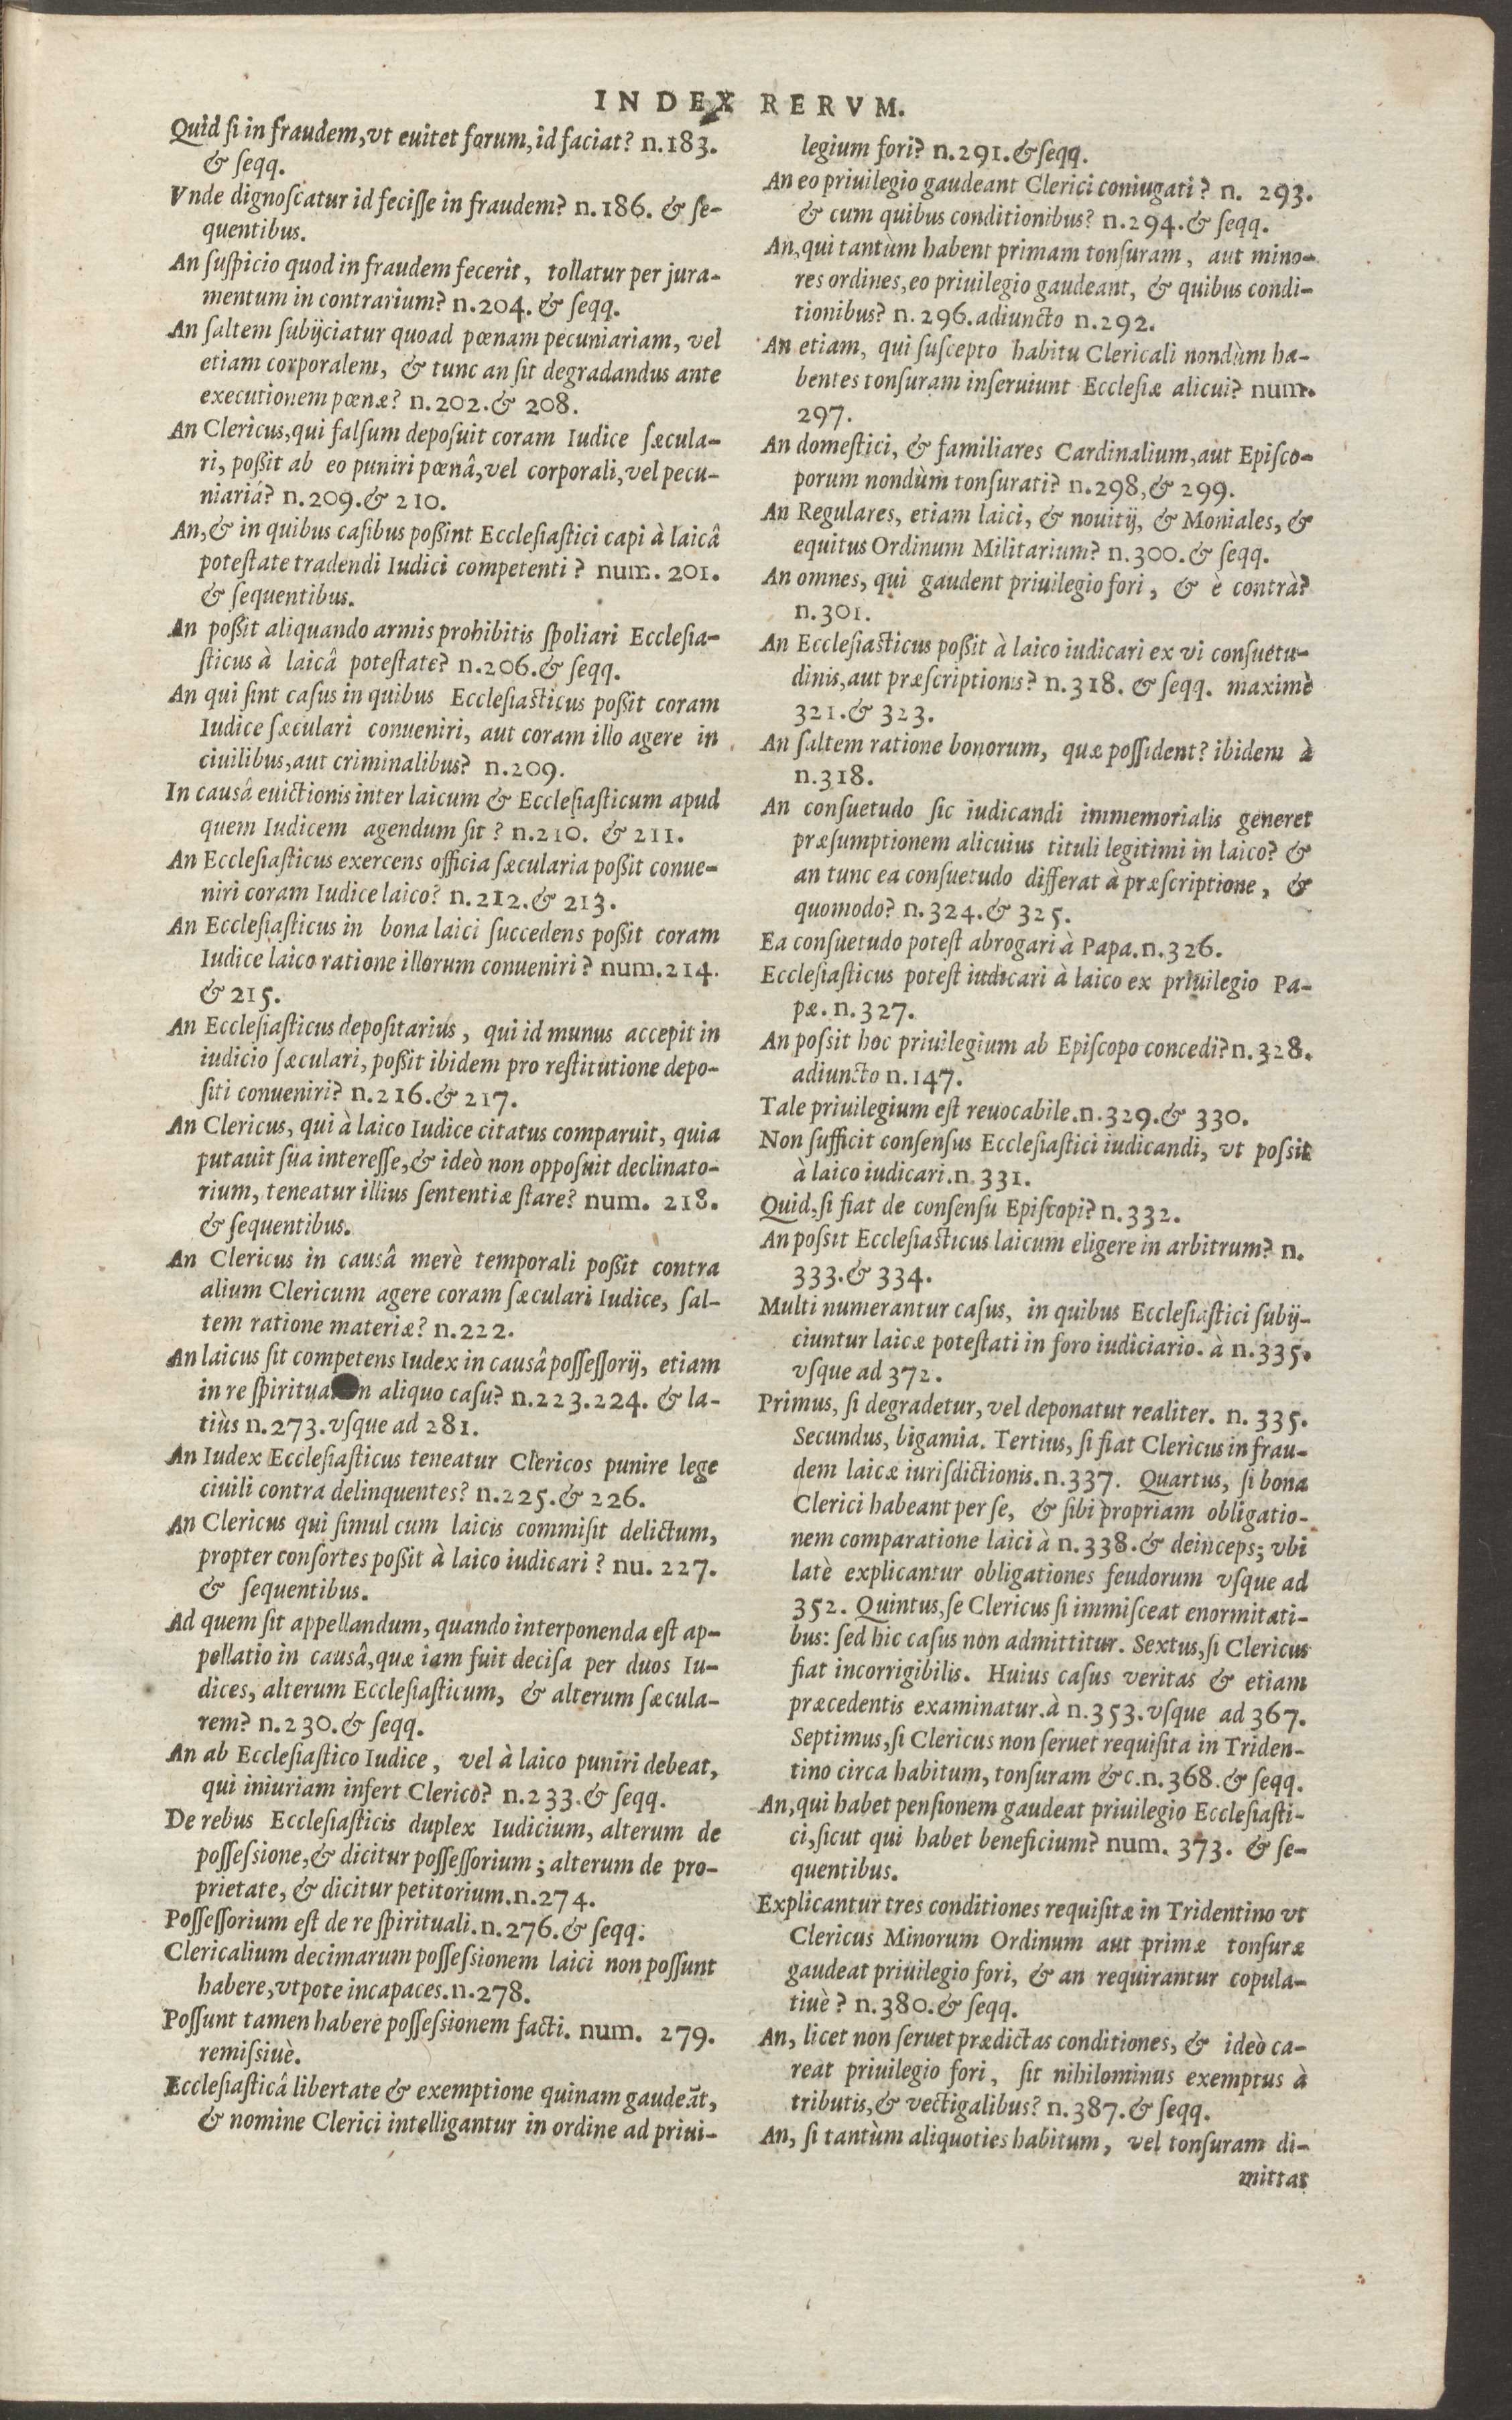 INDEX RERVM.
Quid ſi in fraudem, vt euitet forum, id faciat? n.183.
& ſeqq.
Vnde dignoſcatur id feciſſe in fraudem? n.186. & ſe-
quentibus.
An ſuſpicio quod in fraudem fecerit, tollatur per jura-
mentum in contrarium? n.204. & ſeqq.
An ſaltem ſubijciatur quoad pœnam pecuniariam, vel
etiam corporalem, & tunc an ſit degradandus ante
executionem pœnæ? n.202.& 208.
An Clericus, qui falſum depoſuit coram Iudice ſæcula-
ri, poßit ab eo puniri pœnâ, vel corporali, vel pecu-
niariâ? n.209.& 210.
An, & in quibus caſibus poßint Eccleſiaſtici capi à laicâ
poteſtate tradendi Iudici competenti? num. 201.
& ſequentibus.
An poßit aliquando armis prohibitis ſpoliari Eccleſia-
ſticus à laicâ poteſtate? n.206.& ſeqq.
An qui ſint caſus in quibus Eccleſiaſticus poßit coram
Iudice ſæculari conueniri, aut coram illo agere in
ciuilibus, aut criminalibus? n.209.
In causâ euictionis inter laicum & Eccleſiaſticum apud
quem Iudicem agendum ſit? n.210. & 211.
An Eccleſiaſticus exercens officia ſæcularia poßit conue-
niri coram Iudice laico? n.212.& 213.
An Eccleſiaſticus in bona laici ſuccedens poßit coram
Iudice laico ratione illorum conueniri? num.214.
& 215.
An Eccleſiaſticus depoſitarius, qui id munus accepit in
iudicio ſæculari, poßit ibidem pro reſtitutione depo-
ſiti conueniri? n.216.& 217.
An Clericus, qui à laico Iudice citatus comparuit, quia
putauit ſua intereſſe, & ideò non oppoſuit declinato-
rium, teneatur illius ſententiæ ſtare? num. 218.
& ſequentibus.
An Clericus in causâ merè temporali poßit contra
alium Clericum agere coram ſæculari Iudice, ſal-
tem ratione materiæ? n.222.
An laicus ſit competens Iudex in causâ poſſeſſorij, etiam
in re ſpiritua n aliquo caſu? n.223.224. & la-
tiùs n.273. vſque ad 281.
An Iudex Eccleſiaſticus teneatur Clericos punire lege
ciuili contra delinquentes? n.225.& 226.
An Clericus qui ſimul cum laicis commiſit delictum,
propter conſortes poßit à laico iudicari? nu. 227.
& ſequentibus.
Ad quem ſit appellandum, quando interponenda eſt ap-
pellatio in causâ, quæ iam fuit deciſa per duos Iu-
dices, alterum Eccleſiaſticum, & alterum ſæcula-
rem? n.230.& ſeqq.
An ab Eccleſiaſtico Iudice, vel à laico puniri debeat,
qui iniuriam infert Clerico? n.233.& ſeqq.
De rebus Eccleſiaſticis duplex Iudicium, alterum de
poſſeſsione, & dicitur poſſeſſorium; alterum de pro-
prietate, & dicitur petitorium.n.274.
Poſſeſſorium eſt de re ſpirituali.n.276.& ſeqq.
Clericalium decimarum poſſeſsionem laici non poſſunt
habere, vtpote incapaces.n.278.
Poſſunt tamen habere poſſeſsionem facti. num. 279.
remiſsiuè.
Eccleſiaſticâ libertate & exemptione quinam gaudeãt,
& nomine Clerici intelligantur in ordine ad priui-
legium fori? n.291.& ſeqq.
An eo priuilegio gaudeant Clerici coniugati? n. 293.
& cum quibus conditionibus? n.294.& ſeqq.
An, qui tantùm habent primam tonſuram, aut mino-
res ordines, eo priuilegio gaudeant, & quibus condi-
tionibus? n.296. adiuncto n.292.
An etiam, qui ſuſcepto habitu Clericali nondùm ha-
bentes tonſuram inſeruiunt Eccleſiæ alicui? num.
297.
An domeſtici, & familiares Cardinalium, aut Epiſco-
porum nondùm tonſurati? n.298,& 299.
An Regulares, etiam laici, & nouitij, & Moniales, &
equitus Ordinum Militarium? n.300.& ſeqq.
An omnes, qui gaudent priuilegio fori, & è contrà?
n.301.
An Eccleſiaſticus poßit à laico iudicari ex vi conſuetu-
dinis, aut præſcriptionis? n.318. & ſeqq. maximè
321.& 323.
An ſaltem ratione bonorum, quæ poſſident? ibidem à
n.318.
An conſuetudo ſic iudicandi immemorialis generet
præſumptionem alicuius tituli legitimi in laico? &
an tunc ea conſuetudo differat à præſcriptione, &
quomodo? n.324.& 325.
Ea conſuetudo poteſt abrogari à Papa.n.326.
Eccleſiaſticus poteſt iudicari à laico ex priuilegio Pa-
pæ. n.327.
An poſsit hoc priuilegium ab Epiſcopo concedi? n.328.
adiuncto n.147.
Tale priuilegium eſt reuocabile.n.329.& 330.
Non ſufficit conſenſus Eccleſiaſtici iudicandi, vt poſsit
à laico iudicari.n.331.
Quid, ſi fiat de conſenſu Epiſcopi? n.332.
An poſsit Eccleſiaſticus laicum eligere in arbitrum? n.
333.& 334.
Multi numerantur caſus, in quibus Eccleſiaſtici ſubij-
ciuntur laicæ poteſtati in foro iudiciario. à n.335.
vſque ad 372.
Primus, ſi degradetur, vel deponatut realiter. n. 335.
Secundus, bigamia. Tertius, ſi fiat Clericus in frau-
dem laicæ iuriſdictionis.n.337. Quartus, ſi bona
Clerici habeant per ſe, & ſibi propriam obligatio-
nem comparatione laici à n.338.& deinceps; vbi
latè explicantur obligationes feudorum vſque ad
352. Quintus, ſe Clericus ſi immiſceat enormitati-
bus: ſed hic caſus non admittitur. Sextus, ſi Clericus
fiat incorrigibilis. Huius caſus veritas & etiam
præcedentis examinatur.à n.353. vſque ad 367.
Septimus, ſi Clericus non ſeruet requiſita in Triden-
tino circa habitum, tonſuram &c.n.368.& ſeqq.
An, qui habet penſionem gaudeat priuilegio Eccleſiaſti-
ci, ſicut qui habet beneficium? num. 373. & ſe-
quentibus.
Explicantur tres conditiones requiſitæ in Tridentino vt
Clericus Minorum Ordinum aut primæ tonſuræ
gaudeat priuilegio fori, & an requirantur copula-
tiuè? n.380.& ſeqq.
An, licet non ſeruet prædictas conditiones, & ideò ca-
reat priuilegio fori, ſit nihilominus exemptus à
tributis, & vectigalibus? n.387.& ſeqq.
An, ſi tantùm aliquoties habitum, vel tonſuram di-
mittat